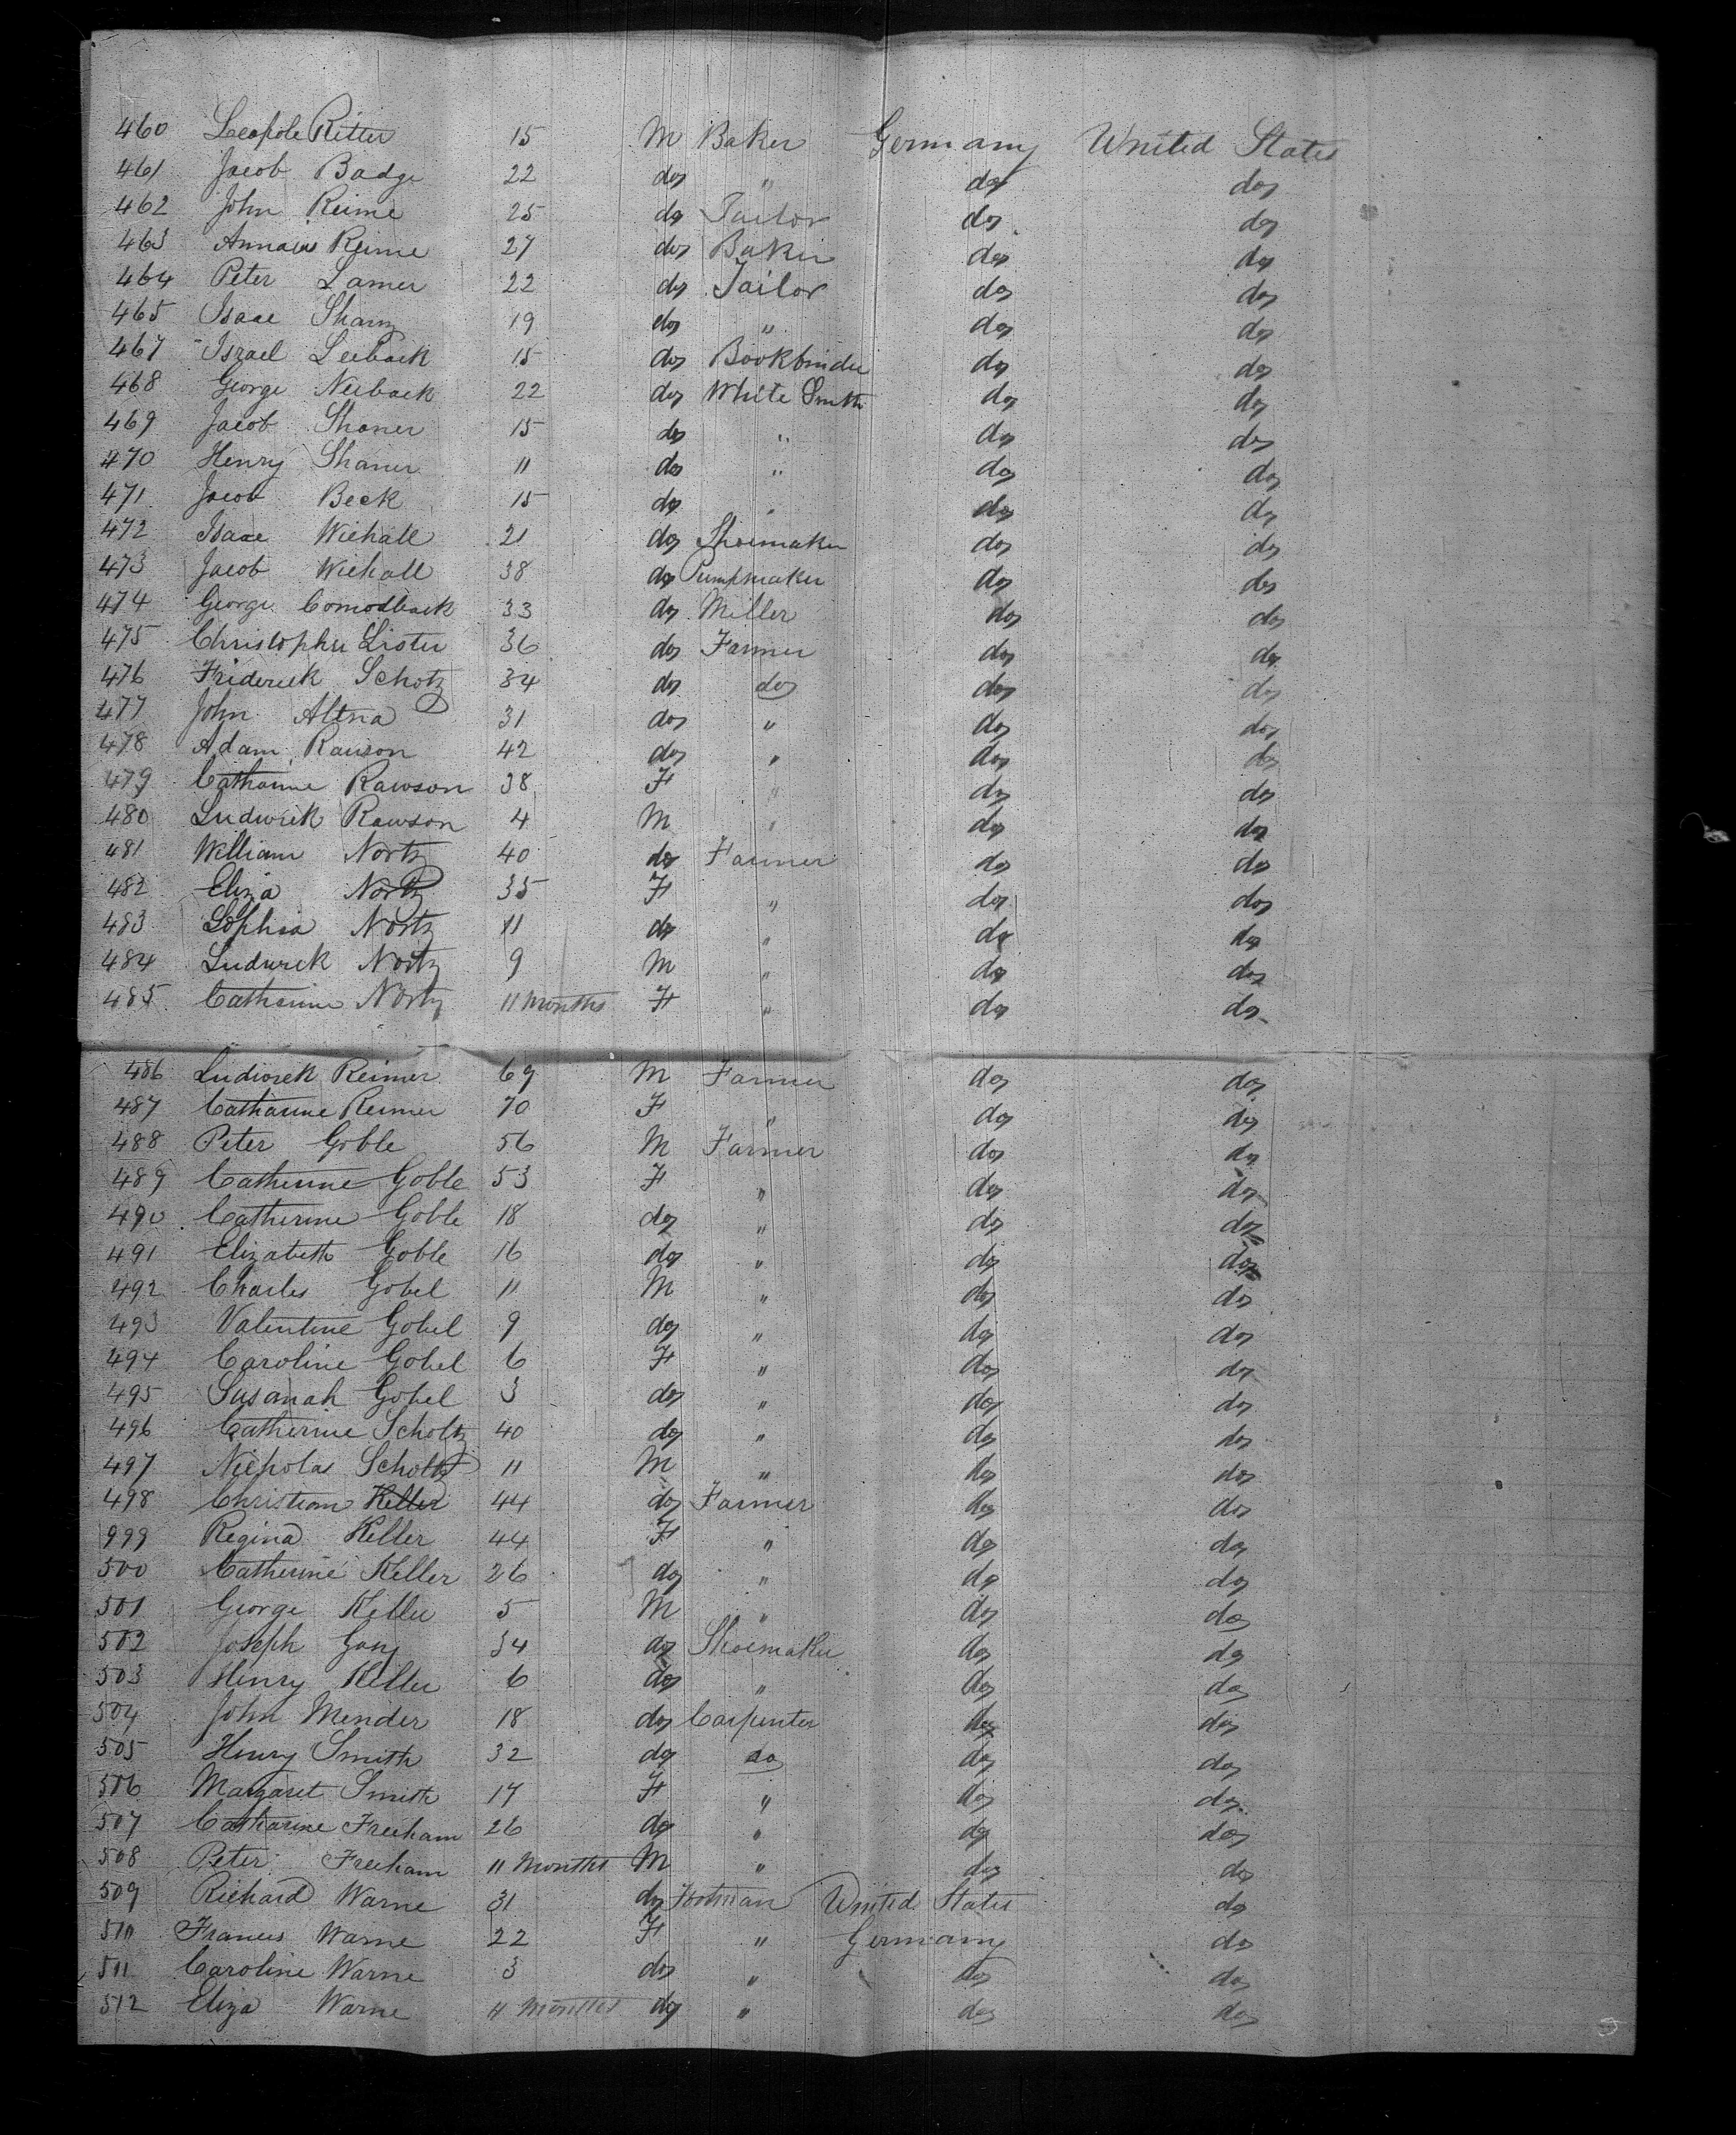 460 Leopole Ritter 15 M Baker Germany United States
461 Jacob Badge 22 do " do do
462 John Reime 25 do Tailor do do
463 Reime 27 do Baker do do
464 Peter Lamer 22 do Tailor do do
465 Isaac Sharz 19 do " do do
467 Israel Leeback 15 do Bookbinder do do
468 George Neeback 22 do White Smith do do
469 Jacob Shaner 15 do " do do
470 Henry Shaner 11 do " do do
471 Jacob Beck 15 do " do do
472 Isaac Wiehall 21 do Shoemaker do do
473 Jacob Wiehall 38 do Pumpmaker do do
474 George Comodback 33 do Miller do do
475 Christopher Lister 36 do Farmer do do
476 Friderick Schotz 34 do do do do
477 John Altna 31 do " do do
478 Adam Rawson 42 do " do do
479 Catharine Rawson 38 F " do do
480 Ludwick Rawson 4 M " do do
481 William Nortz 40 do Farmer do do
482 Eliza Nortz 35 F " do do
483 Sophia Nortz 11 do " do do
484 Ludwick Nortz 9 M " do do
485 Catharine Nortz 11 months F " do do
486 Ludwick Reimer 69 M Farmer do do
487 Catharine Reimer 70 F " do do
488 Peter Goble 56 M Farmer do do
489 Catherine Goble 53 F " do do
490 Catherine Goble 18 do " do do
491 Elizabeth Goble 16 do " do do
492 Charles Gobel 11 M " do do
493 Valentine Gobel 9 do " do do
494 Caroline Gobel 6 F " do do
495 Susanah Gobel 3 do " do do
496 Catherine Scholtz 40 do " do do
497 Nicholas Scholtz 11 M " do do
498 Christian Keller 44 do Farmer do do
999 Regina Keller 44 F " do do
500 Catherine Keller 26 do " do do
501 George Keller 5 M " do do
502 Joseph Gang 34 do Shoemaker do do
503 Henry Keller 6 do " do do
504 John Mender 18 do Carpenter do do
505 Henry Smith 32 do do do do
506 Margaret Smith 17 F " do do
507 Catharine Freeham 26 do " do do
508 Peter Freeham 11 Months M " do do
509 Richard Warne 31 do Footman United States do
510 Frances Warne 22 F " Germany do
511 Caroline Warne 3 do " do do
512 Eliza Warne 11 Months do " do do